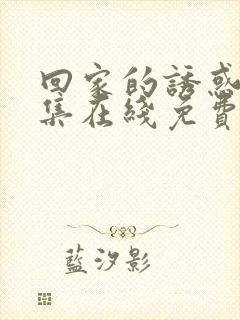 回家的誘惑
集在綫免費
藍汐影